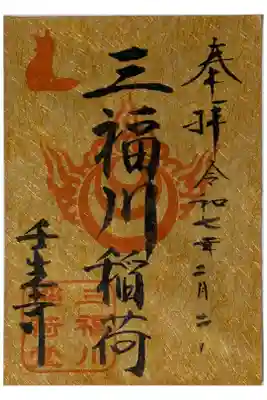 奉拝 令和七年二月二日
三福川稲荷
壬生寺
三福川
稲荷社